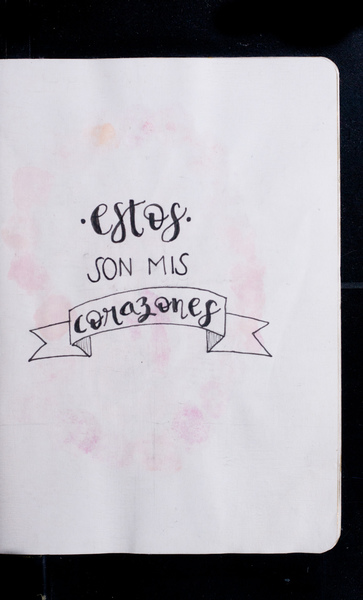 ·estos·
SON MIS
corazones